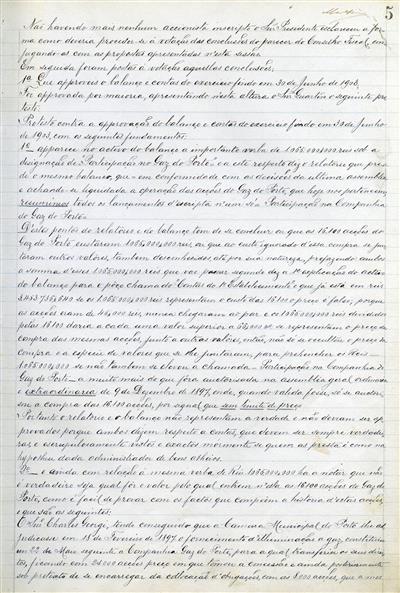 5
Não havendo mais nenhum accionista inscripto o Snr. Presidente esclareceu a for-
ma como deveria proceder-se á votação das conclusões do parecer do Conselho Fiscal, con-
jugando-as com as propostas apresentadas n'esta sessão.
Em seguida foram postas á votação aquellas conclusões:
1ª Que approveis o balanço e contas do exercicio findo em 30 de Junho de 1903.
Foi approvada por maioria, apresentando n'esta altura o Snr. Quartin o seguinte pro-
testo:
Protesto contra a approvação do balanço e contas do exercicio findo em 30 de Junho
de 1903, com os seguintes fundamentos:
1º apparece no activo do balanço a importante verba de reis sob a
designação de "Participação no Gaz do Porto" e a este respeito diz o relatorio que prece-
de o mesmo balanço, que "em conformidade com as decisões da ultima assemblea
e achando-se liquidada a operação das acções do Gaz do Porto, que hoje nos pertencem,
reunimos todos os lançamentos d'escripta n'um só: Participação na Companhia
do Gaz do Porto."
D'estes pontos do relatorio e do balanço tem de se concluir ou que as 16:100 acções do
Gaz do Porto custaram reis, ou que ao custo ignorado d'essa compra se jun-
taram outros valores, tambem desconhecidos até por sua natureza, prefazendo ambos
a somma d'esses reis que vae passar segundo diz a 1ª applicação do activo
do balanço para o pêço chamado Contas de 1º Estabelecimento e que já está em reis
se os reis representam o custo das 16:100 o preço é falso, porque
as acções eram de reis, nunca chegaram ao par e os reis divididos
pelas 16:100 daria a cada uma valor superior a e se representam o preço de
compra das mesmas acções, junto a outros valores, então, não só se occultou o preço da
compra e a especie de valores que se lhe juntaram, para prehencher os Reis
se não tambem se elevou a chamada - Participação na Companhia do
Gaz do Porto - a muito mais do que fôra auctorisada na assemblea geral ordinaria
e extraordinaria de 9 de Dezembro de 1897, onde, quando valida fosse, só se auctori-
sou a compra das 16:100 acções, por signal, que sem limite de preço.
Portanto o relatorio e o balanço não representam a verdade e não devem ser ap-
provados porque ambos dizem respeito a contas, que devem ser sempre verdadei-
ras, e escrupulosamente vistos e exactos mormente se quem as presta é como na
hypothese dada administrador de bens alheios.
2º - e ainda em relação á mesma verba de Reis ha a notar que não
é verdadeiro seja qual fôr o valor pelo qual entrem n'esta as 16:100 acções do Gaz do
Porto, como é facil de provar com os factos que compõem a historia d'estas acções,
e que são as seguintes:
O Snr. Charles Georgi, tendo conseguido que a Camara Municipal do Porto lhe ad-
judicasse em 18 de Fevereiro de 1897 o fornecimento d'illuminação a gaz, constituiu
em 22 de Maio seguinte a Companhia Gaz do Porto, para a qual transferiu os seus direi-
tos, ficando com acções preço em que tomou a concessão e ainda posteriormente
sob pretexto de se encarregar da collocação d'obrigações, com as 8:000 acções, que a mes-